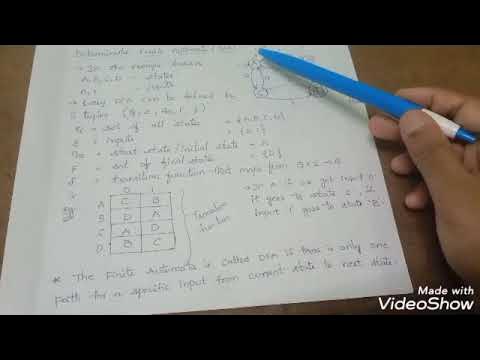 Deterministic Finite Automata (DFA)
→ In the example shown
A, B, C, D → states
0, 1 → inputs
→ Every DFA can be defined by
5 tuples (Q, Σ, q0, F, δ)
Q = set of all states = {A, B, C, D}
Σ = inputs = {0, 1}
q0 = start state/initial state = A
F = set of final state = {D}
δ = transition function that maps from Q × Σ → Q
0 1
A C B
B D A
C A D
D B C
Transition function
→ In A if we get input 0
it goes to state C, if
input 1 goes to state 'B'.
* The Finite Automata is called DFA if there is only one
path for a specific input from current state to next state.
Made with
VideoShow